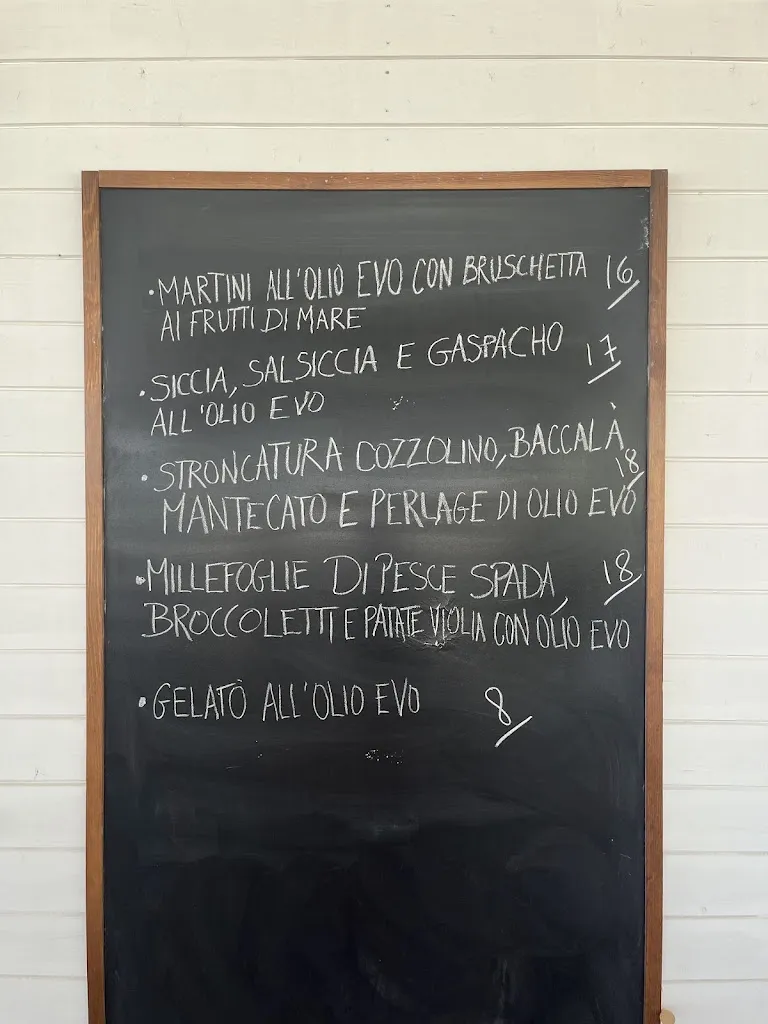 • MARTINI ALL'OLIO EVO CON BRUSCHETTA 16
AI FRUTTI DI MARE
• SICCIA, SALSICCIA E GASPACHO 17
ALL'OLIO EVO
• STRONCATURA COZZOLINO, BACCALÀ 18
MANTECATO E PERLAGE DI OLIO EVO
• MILLEFOGLIE DI PESCE SPADA, 18
BROCCOLETTI E PATATE VIOLIA CON OLIO EVO
• GELATO ALL'OLIO EVO 8